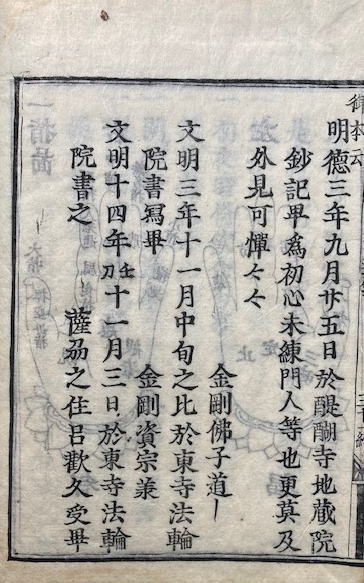 御本云
明徳三年九月廿五日於醍醐寺地蔵院
鈔記畢爲初心未練門人等也更莫及
外見可憚々々
金剛佛子道一
文明三年十一月中旬之比於東寺法輪
院書寫畢
金剛資宗兼
文明十四年壬刀十一月三日於東寺法輪
院書之
薩刕之住呂歡久受畢